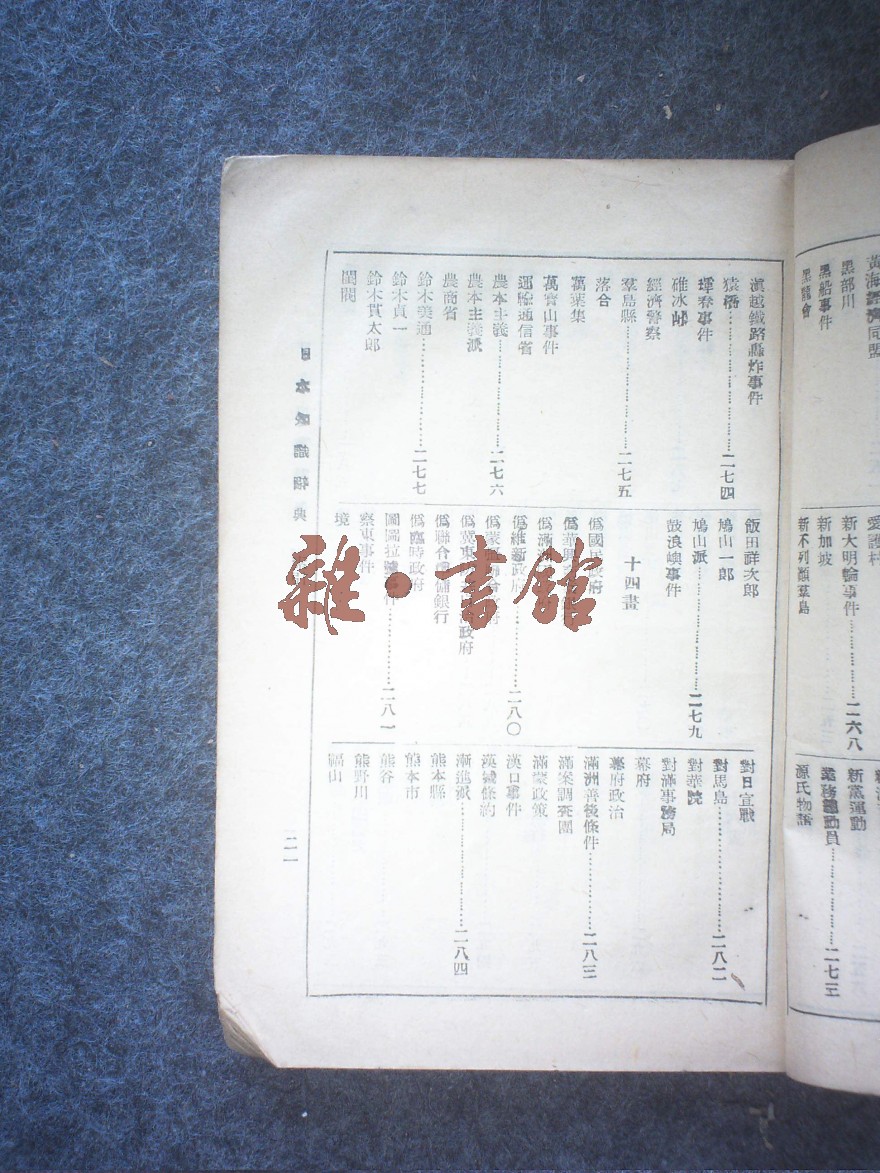 黃海經濟同盟
黑部川
黑船事件
黑龍會
愛護村
新大明輪事件⋯⋯⋯⋯二六八
新加坡
新不列顛葉島
新黨運動
業務總動員⋯⋯⋯⋯二七三
源氏物語
滇越鐵路轟炸事件
猿橋⋯⋯⋯⋯二七四
琿春事件
碓冰峠
經濟警察
羣島縣⋯⋯⋯⋯二七五
落合
萬葉集
萬寶山事件
運輸通信省
農本主義⋯⋯⋯⋯二七六
農本主義派
農商省
鈴木美通⋯⋯⋯⋯二七七
鈴木貞一
鈴木貫太郎
閨閥
飯田祥次郎
鳩山一郎
鳩山派⋯⋯⋯⋯二七九
鼓浪嶼事件
十四畫
僞國民政府
僞華興
僞滿
僞維新政府⋯⋯⋯⋯二八〇
僞蒙
僞冀東政府
僞聯合準備銀行
僞臨時政府
圖圖拉事件⋯⋯⋯⋯二八一
察東事件
境
對日宣戰
對馬島⋯⋯⋯⋯二八二
對華院
對滿事務局
幕府
幕府政治
滿洲善後條件⋯⋯⋯⋯二八三
滿案調查團
滿蒙政策
漢口事件
漢城條約
漸進派⋯⋯⋯⋯二八四
熊本縣
熊本市
熊谷
熊野川
福山
日本 辭典
二一
雜·書館